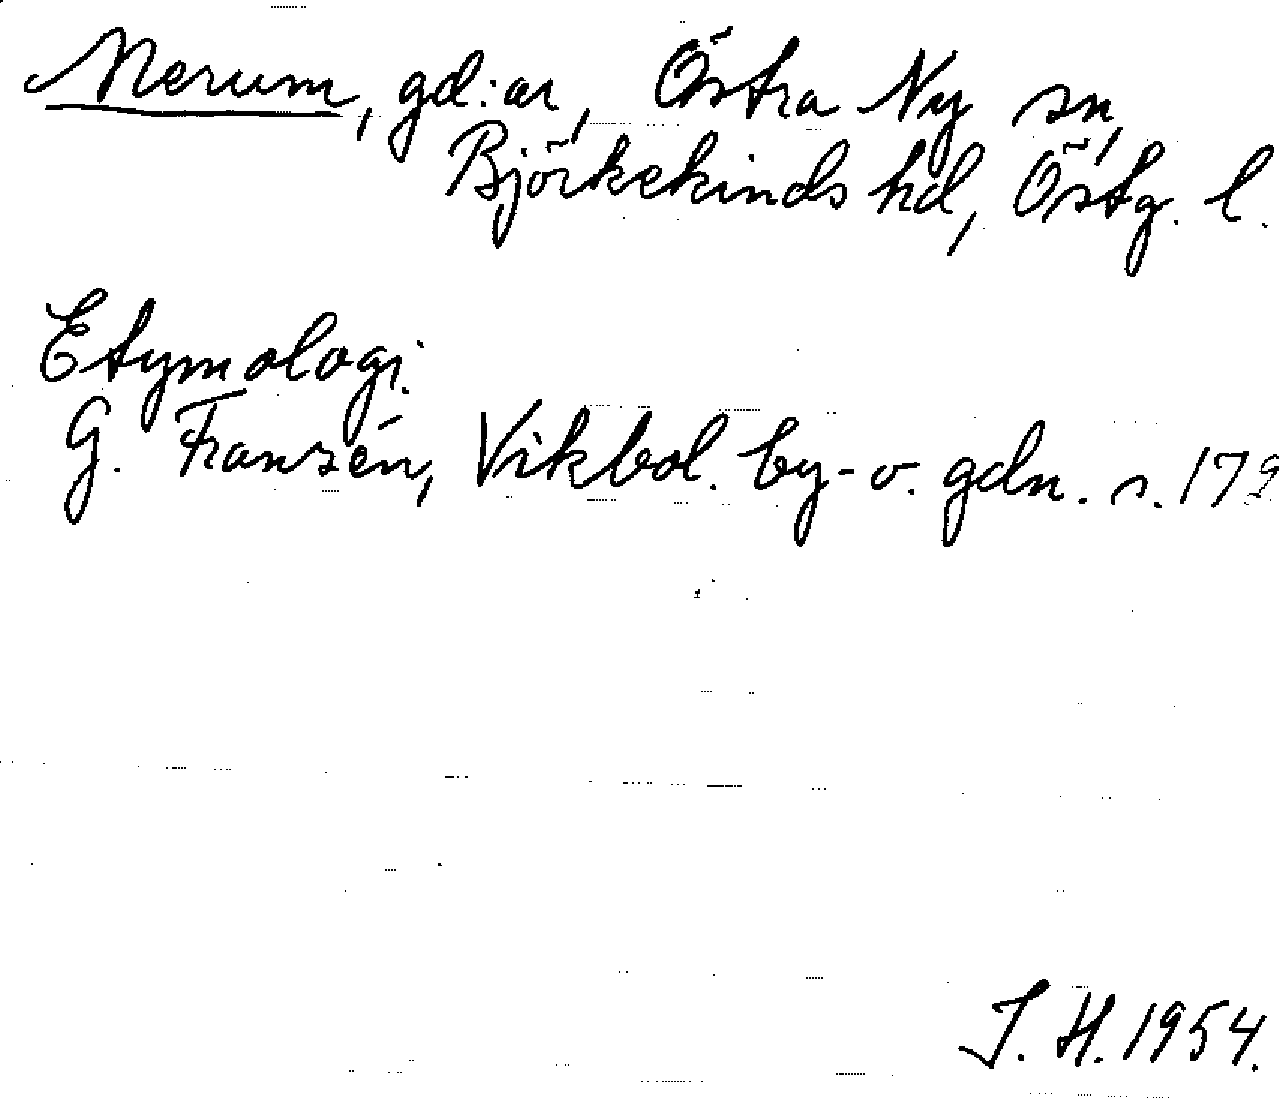 Nerum, gd:ar, Östra Ny sn,
Björkekinds hd, Östg. l.
Etymologi.
G. Franzén, Vikbol. by- o. gdn. s. 179
J. H. 1954.